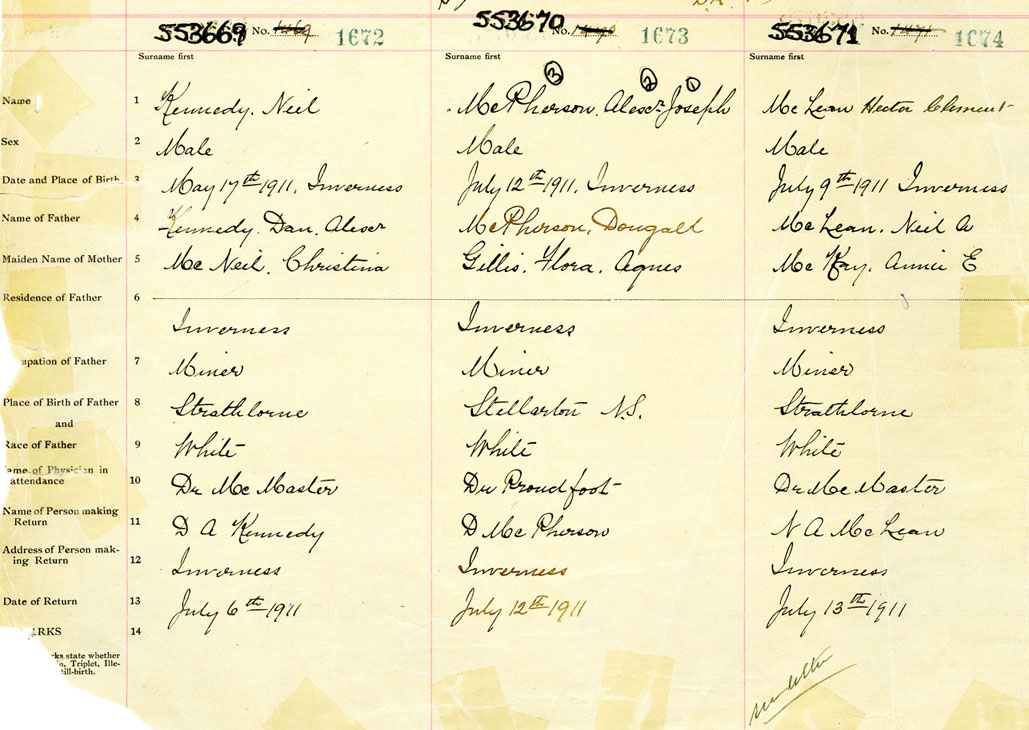 553669 No. 1469 1672 553670 No. 1470 1673 553671 No. 1471 1674
Surname first Surname first Surname first
3 2 1
Name 1 Kennedy. Neil McPherson, Alexr Joseph McLean Hector Clement
Sex 2 Male Male Male
Date and Place of Birth 3 May 17th 1911, Inverness July 12th 1911, Inverness July 9th 1911 Inverness
Name of Father 4 Kennedy. Dan. Alexr McPherson, Dougall McLean. Neil A
Maiden Name of Mother 5 McNeil, Christina Gillis, Flora, Agnes McKay, Annie E
Residence of Father 6
Inverness Inverness Inverness
upation of Father 7 Miner Miner Miner
Place of Birth of Father 8 Strathlorne Stellarton N.S. Strathlorne
and
Race of Father 9 White White White
ame of Physician in
attendance 10 Dr McMaster Dr Proudfoot Dr McMaster
Name of Person making
Return 11 D A Kennedy D McPherson N A McLean
Address of Person mak-
ing Return 12 Inverness Inverness Inverness
Date of Return 13 July 6th 1911 July 12th 1911 July 13th 1911
ARKS 14
ks state whether
Triplet, Ille-
till-birth.